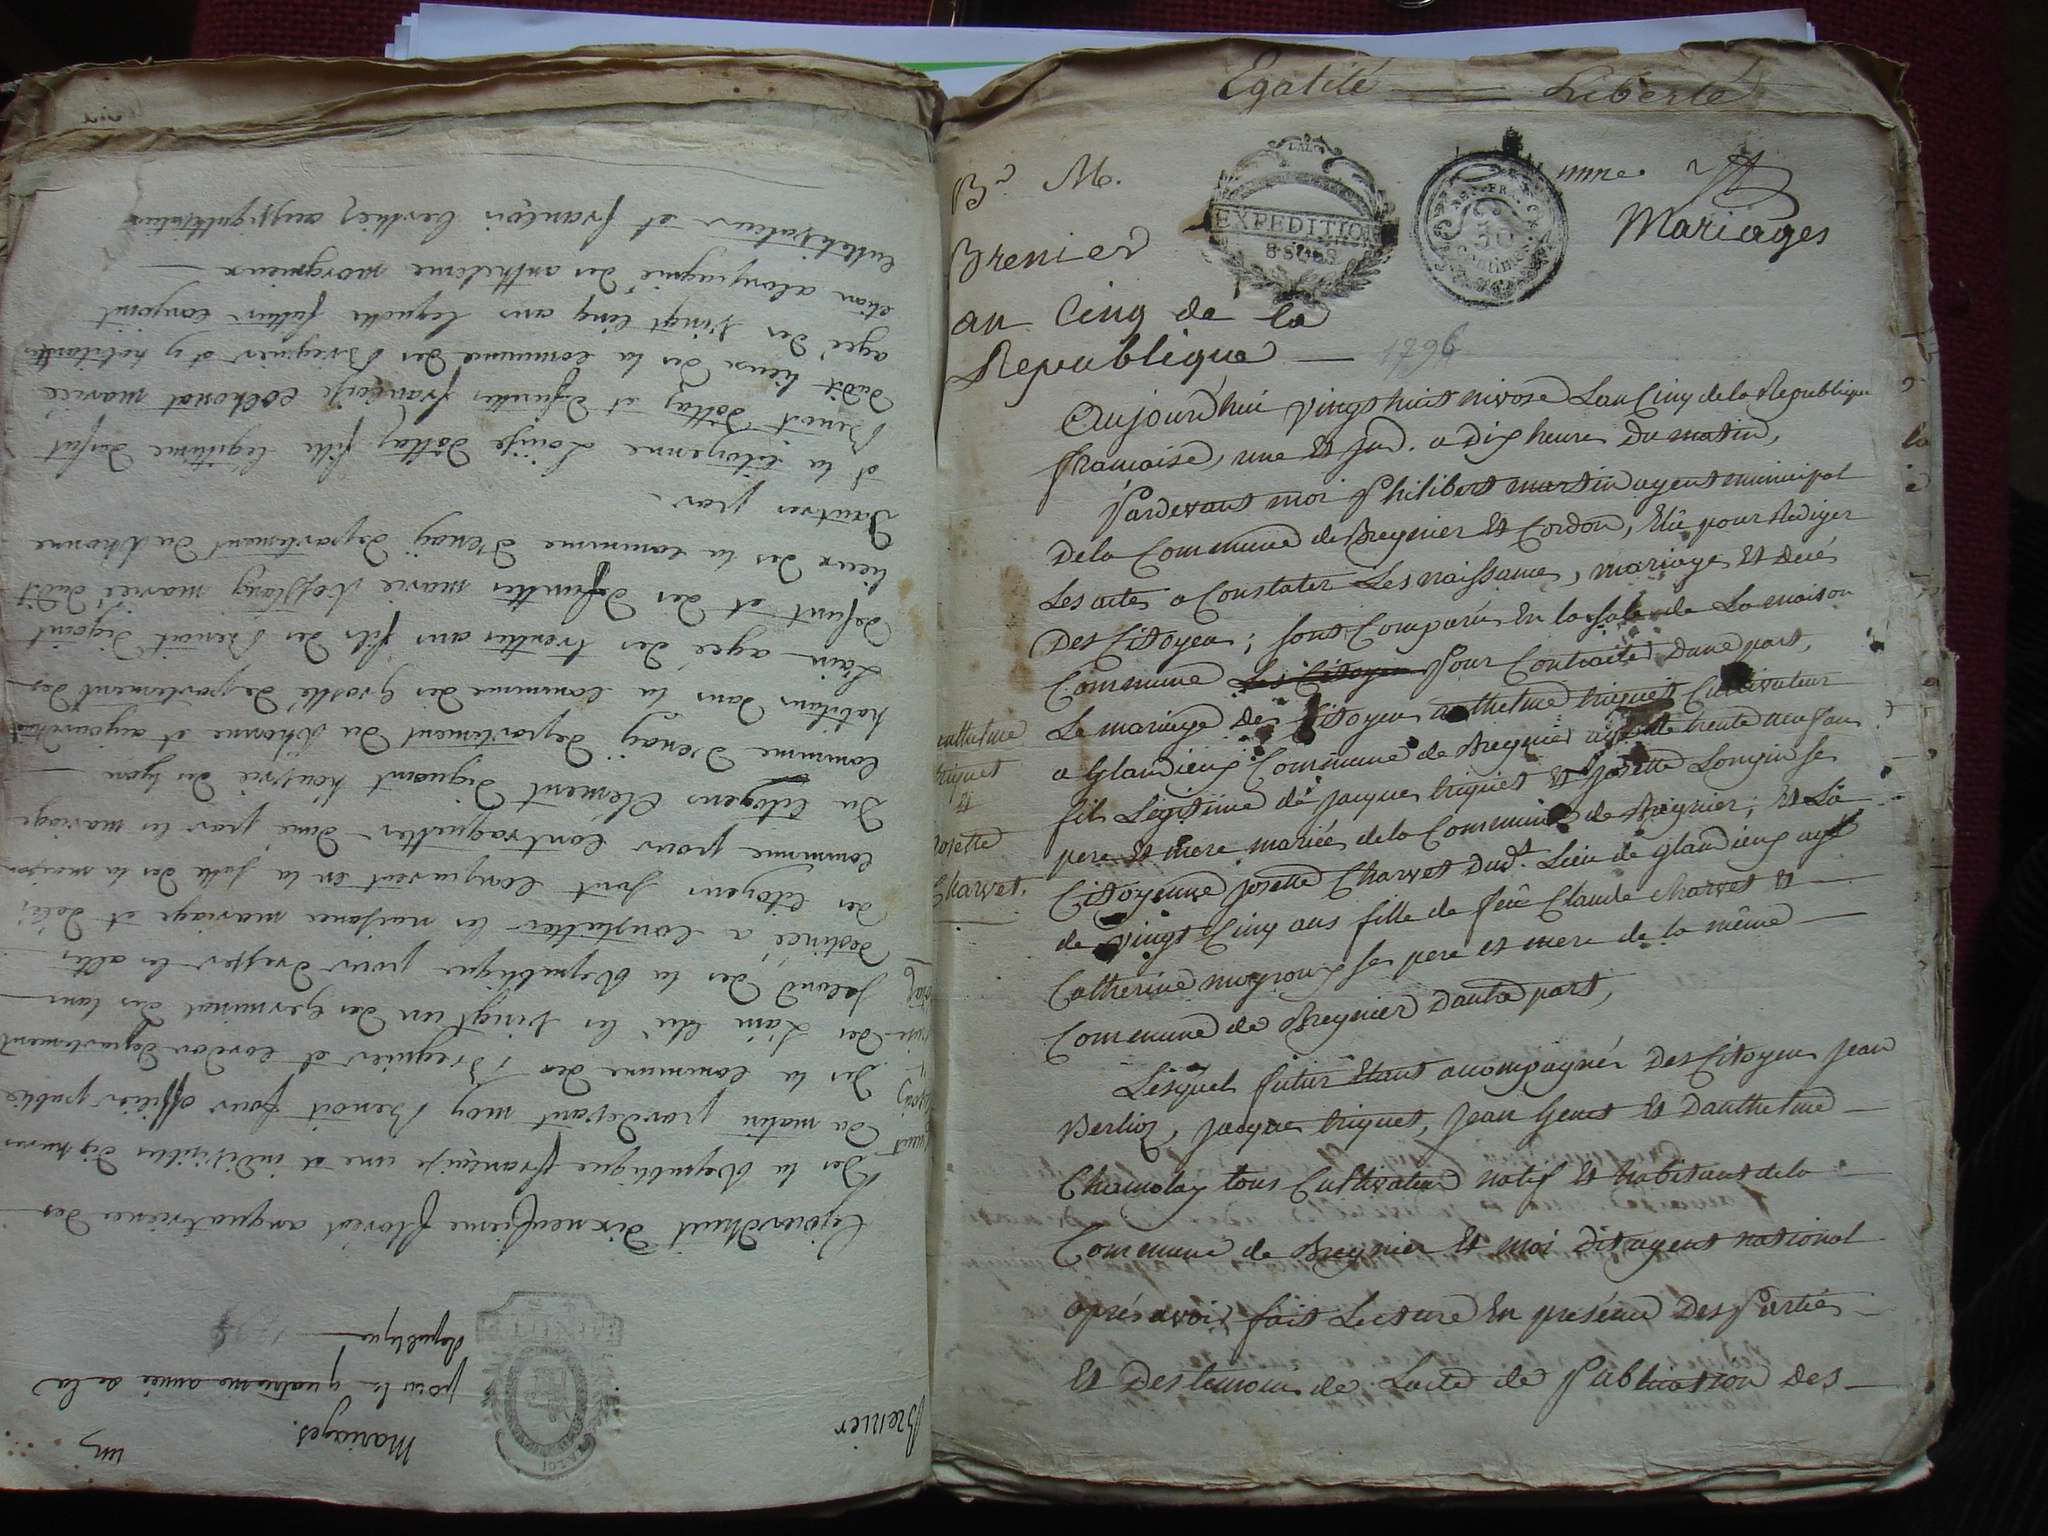 Egalité Liberté
Bre M.
EXPEDITION
8 SOUS
REP. FRA
50
Centimes
Mariages
Brenier
an Cinq de la
Republique 1796
Aujourd'hui vingt huit nivose Lan Cinq de la Republique
francaise, une Et ind. a dix heure Du matin,
Pardevant moi Philibert martin agent municipal
De la Commune de Bregnier Et Cordon, Elu pour Rediger
Les actes a Constater Les naissance, mariage Et Decés
Des Citoyen; sont Comparu En la sale de La maison
Commune Les Citoyen Pour Contracter Dune part,
Le mariage de Citoyen anthelme triquet Cultivateur
a Glandieux Commune de Bregnier agé de trente neuf an
fils Legitime de jacque triquet Et josette Longin se
pere Et mere mariée de la Commune de Bregnier; Et La
Citoyenne josette Charvet Dudt Lieu de glandieux agé
de vingt Cinq ans fille de feu Claude Charvet Et
Catherine moyroux se pere et mere de la même
Commune de Bregnier Dautre part,
anthelme
triquet
Et
josette
Charvet.
Lesquel futur Etant accompagnés Des Citoyen jean
Berlioz, jacque triquet, jean Genet Et Danthelme
Chamolay tous Cultivateur natif Et habitant de la
Commune de Bregnier Et moi dit agent national
aprés avoir fait Lecture En présence Des Partie
Et Des temoin de Lacte de Publication des
Brenier
un
Mariages.
pour la quatrieme année de la
Republique
LA LOI
Cejourdhuit dix neufieme floreal anquatrieme des
Des la Republique française une et indivisibles dix heures
Du matin pardevant moy Benoit officier public
Des la commune des Bregnier et cordon Departement
des Lain elû les vingt un des germinal des lans
second des la Republique pour dresser les actes
destinée a constatter les naissance mariage et deces
des citoyens sont comparurent en la salle des la maison
commune pour contraquetter dune par les mariage
Du Citoyens Clément Diguant des lyon
commune Denay Departement du Rhonne et aujourdhui
habitans dans la commune des Groslé Departement des
Lain agée des trentes ans fils des Benoit
defunt et des defunttes marie mariée dudit
lieux des la commune Denay Departement du Rhonne
Dautres par
et la Citoyenne Loüise Dottay fille legitime defunt
Benoit Dottay et defuntes françoise mariée
dudit lieux des la commune des Bregnier et y habitantes
agée des vingt cinq ans lesquelle futur conjoint
etion acompagné des antheleme morgnieux
cultivateur et françois berthier aussy cultivateur